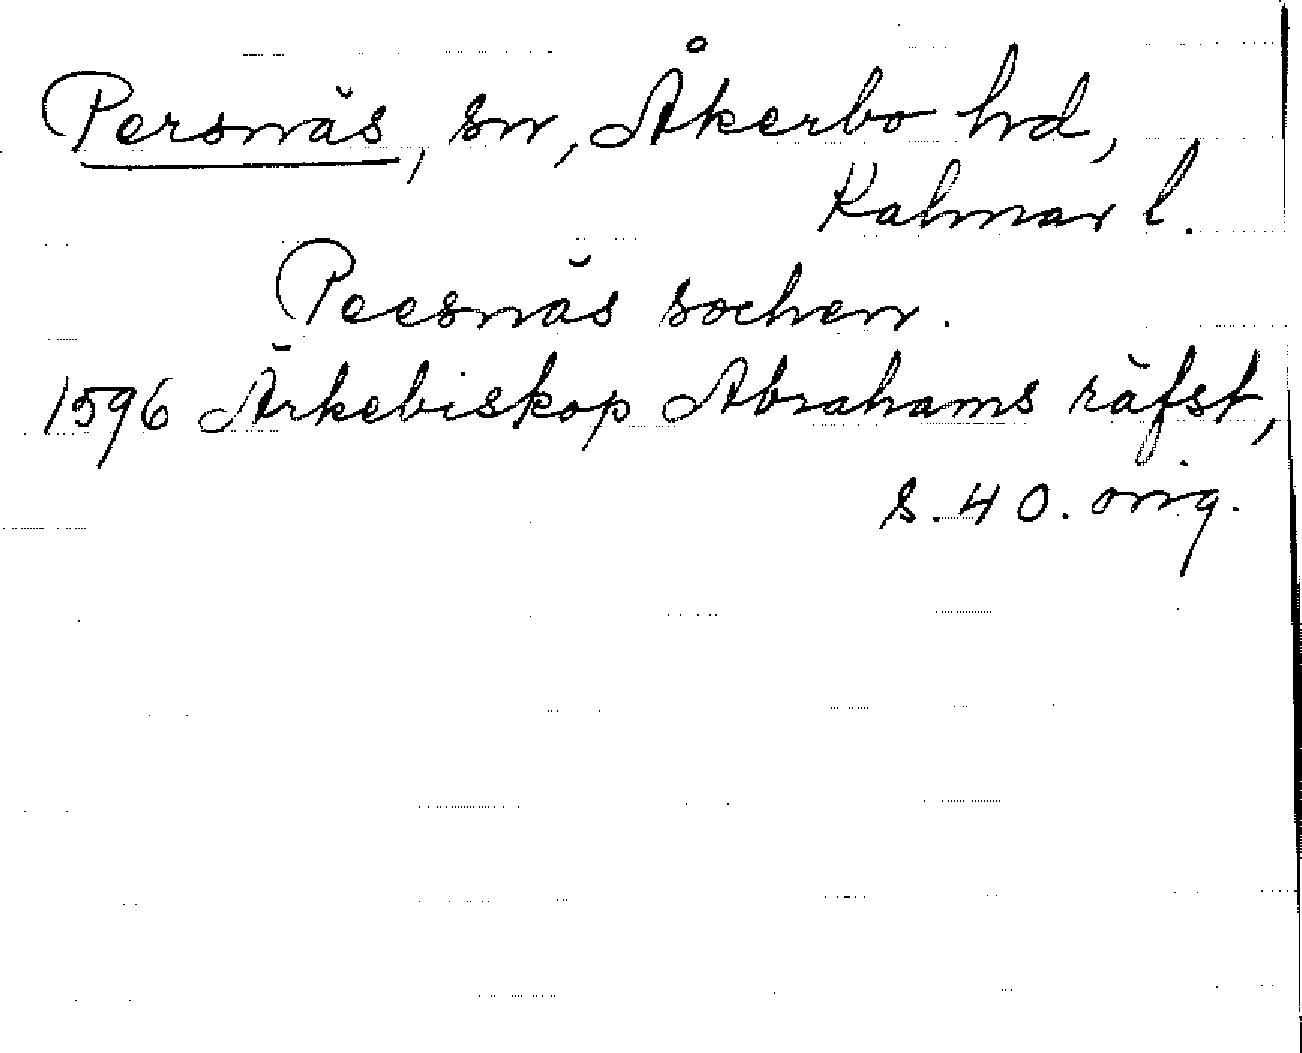 Persnäs, sn, Åkerbo hd,
Kalmar l.
Peesnäs sochen.
1596 Ärkebiskop Abrahams räfst,
s. 40. orig.